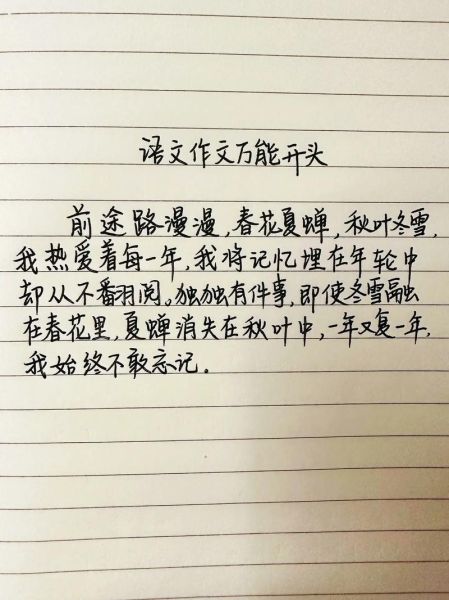 语文作文万能开头
前途路漫漫,春花夏蝉,秋叶冬雪,
我热爱着每一年,我将记忆埋在年轮中
却从不翻阅。独独有件事,即使冬雪融
在春花里,夏蝉消失在秋叶中,一年又复一年,
我始终不敢忘记。